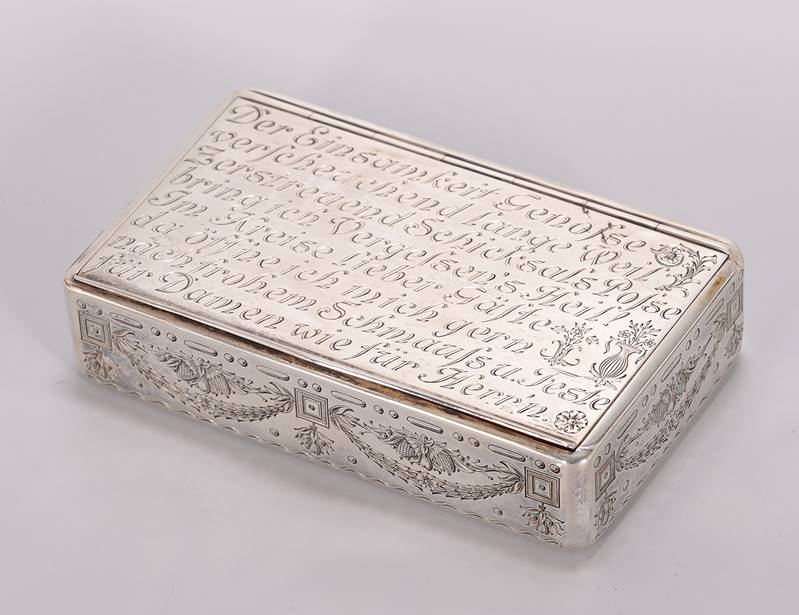 Der Einsamkeit Genosse
verscheuchend lange Weil
Zerstreuend Schicksals Posse
bring ich Vergessen's Heil!
Im Kreise lieber Gäste
da öffne ich mich gern
nach frohem Schmauss u. Feste
für Damen wie für Herr'n.